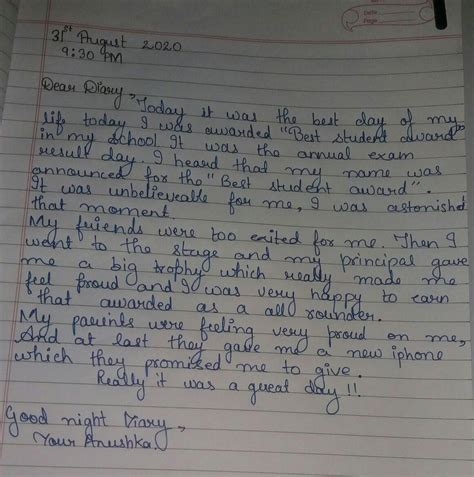 Date
Page
31st August 2020
9:30 PM
Dear Diary, Today it was the best day of my
life today I was awarded "Best student award"
in my school It was the annual exam
result day. I heard that my name was
announced for the "Best student award".
It was unbelievealle for me, I was astonished
that moment.
My friends were too exited for me. Then I
went to the stage and my principal gave
me a big trophy which really made me
feel proud and I was very happy to earn
that awarded as a all rounder.
My parients were feeling very proud on me,
And at last they gave me a new iphone
which they promised me to give.
Really it was a great day!!
Good night Diary,
Your Anushka.